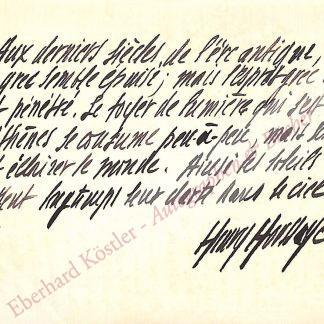 Aux derniers siècles de l'ère antique,
grec semble épuisé; mais l'esprit grec
pénètre. Le foyer de lumière qui est
Athènes se consume peu-à-peu, mais
éclairer le monde. Ainsi les
longtemps leur clarté dans le ciel
Henry Houssaye
Eberhard Köstler - Autographen